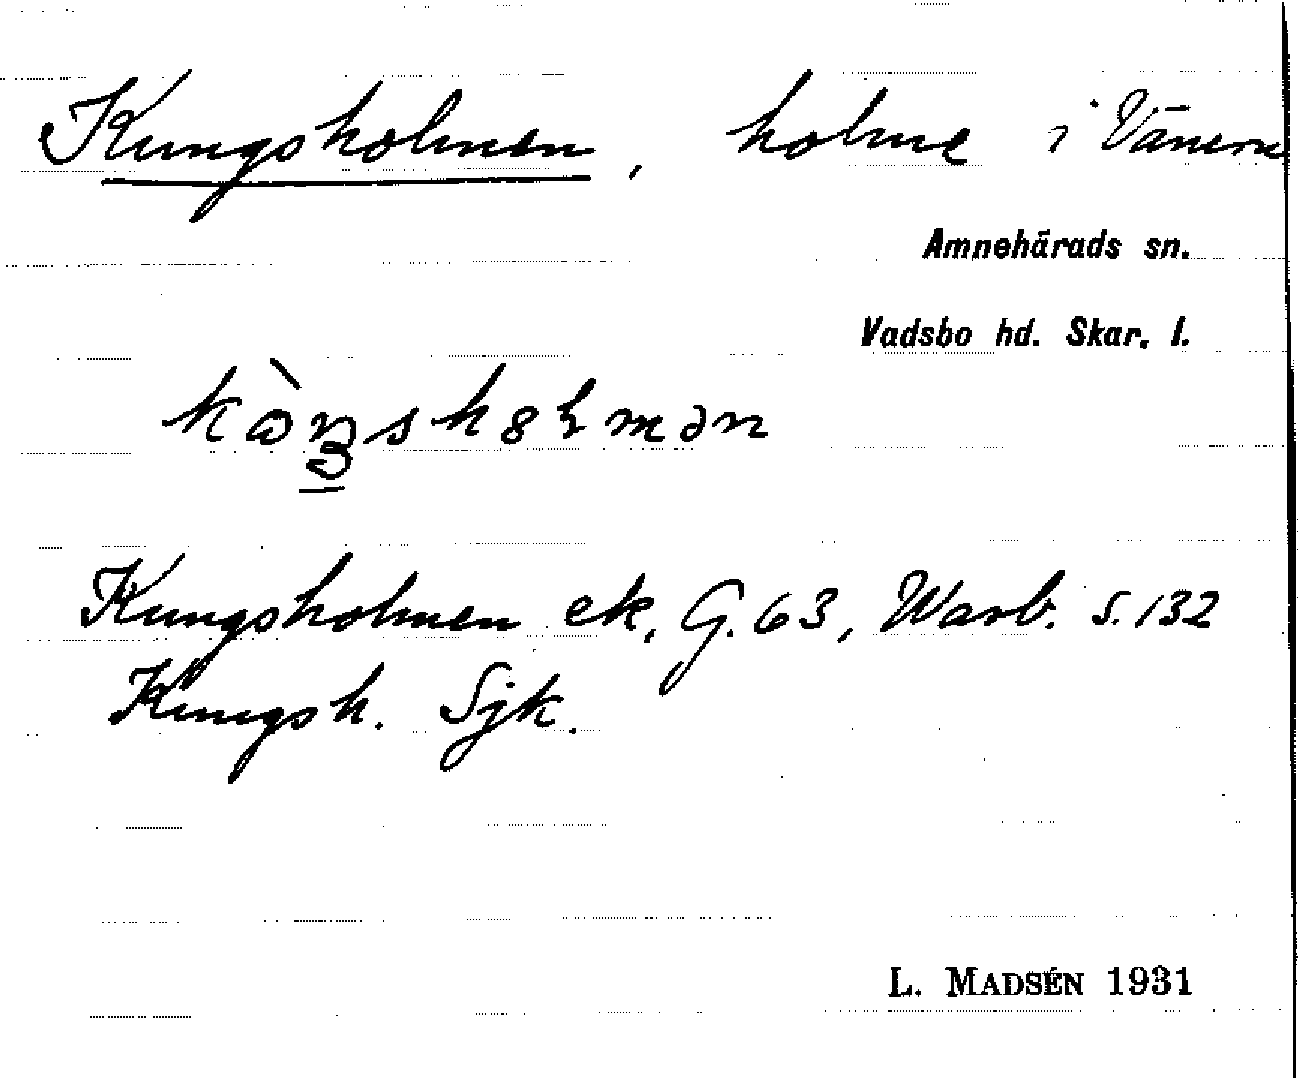 Kungsholmen, holme i Vänern
Amnehärads sn.
Vadsbo hd. Skar. l.
Kungsholmen ek, G. 63, Warb. S. 132
Kungsh. Sjk.
L. MADSÉN 1931